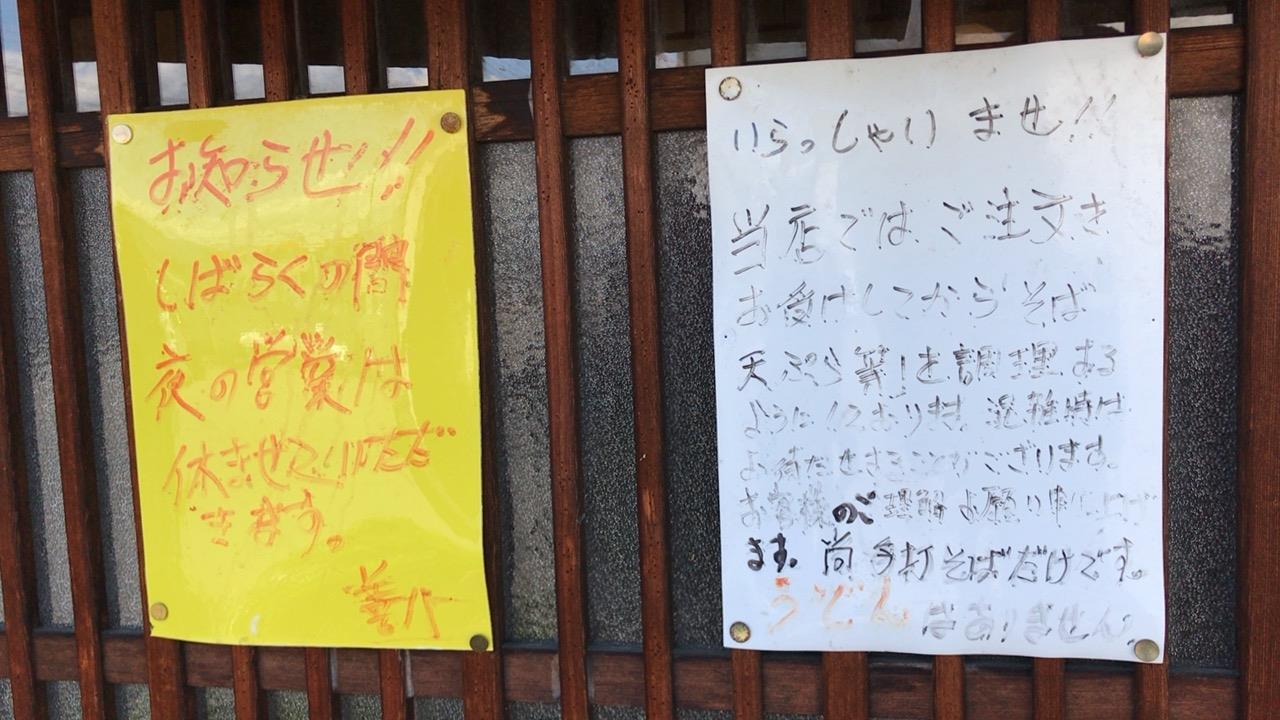 お知らせ!!
しばらくの間
夜の営業は
休ませていただ
きます。
いらっしゃいませ!!
当店ではご注文を
お受けしてからそば
天ぷら等」を調理する
ようにしております。混雑時は
お待たせすることがございます。
お客様のご理解お願い申し上げ
ます。尚手打そばだけです。
うどんはありません